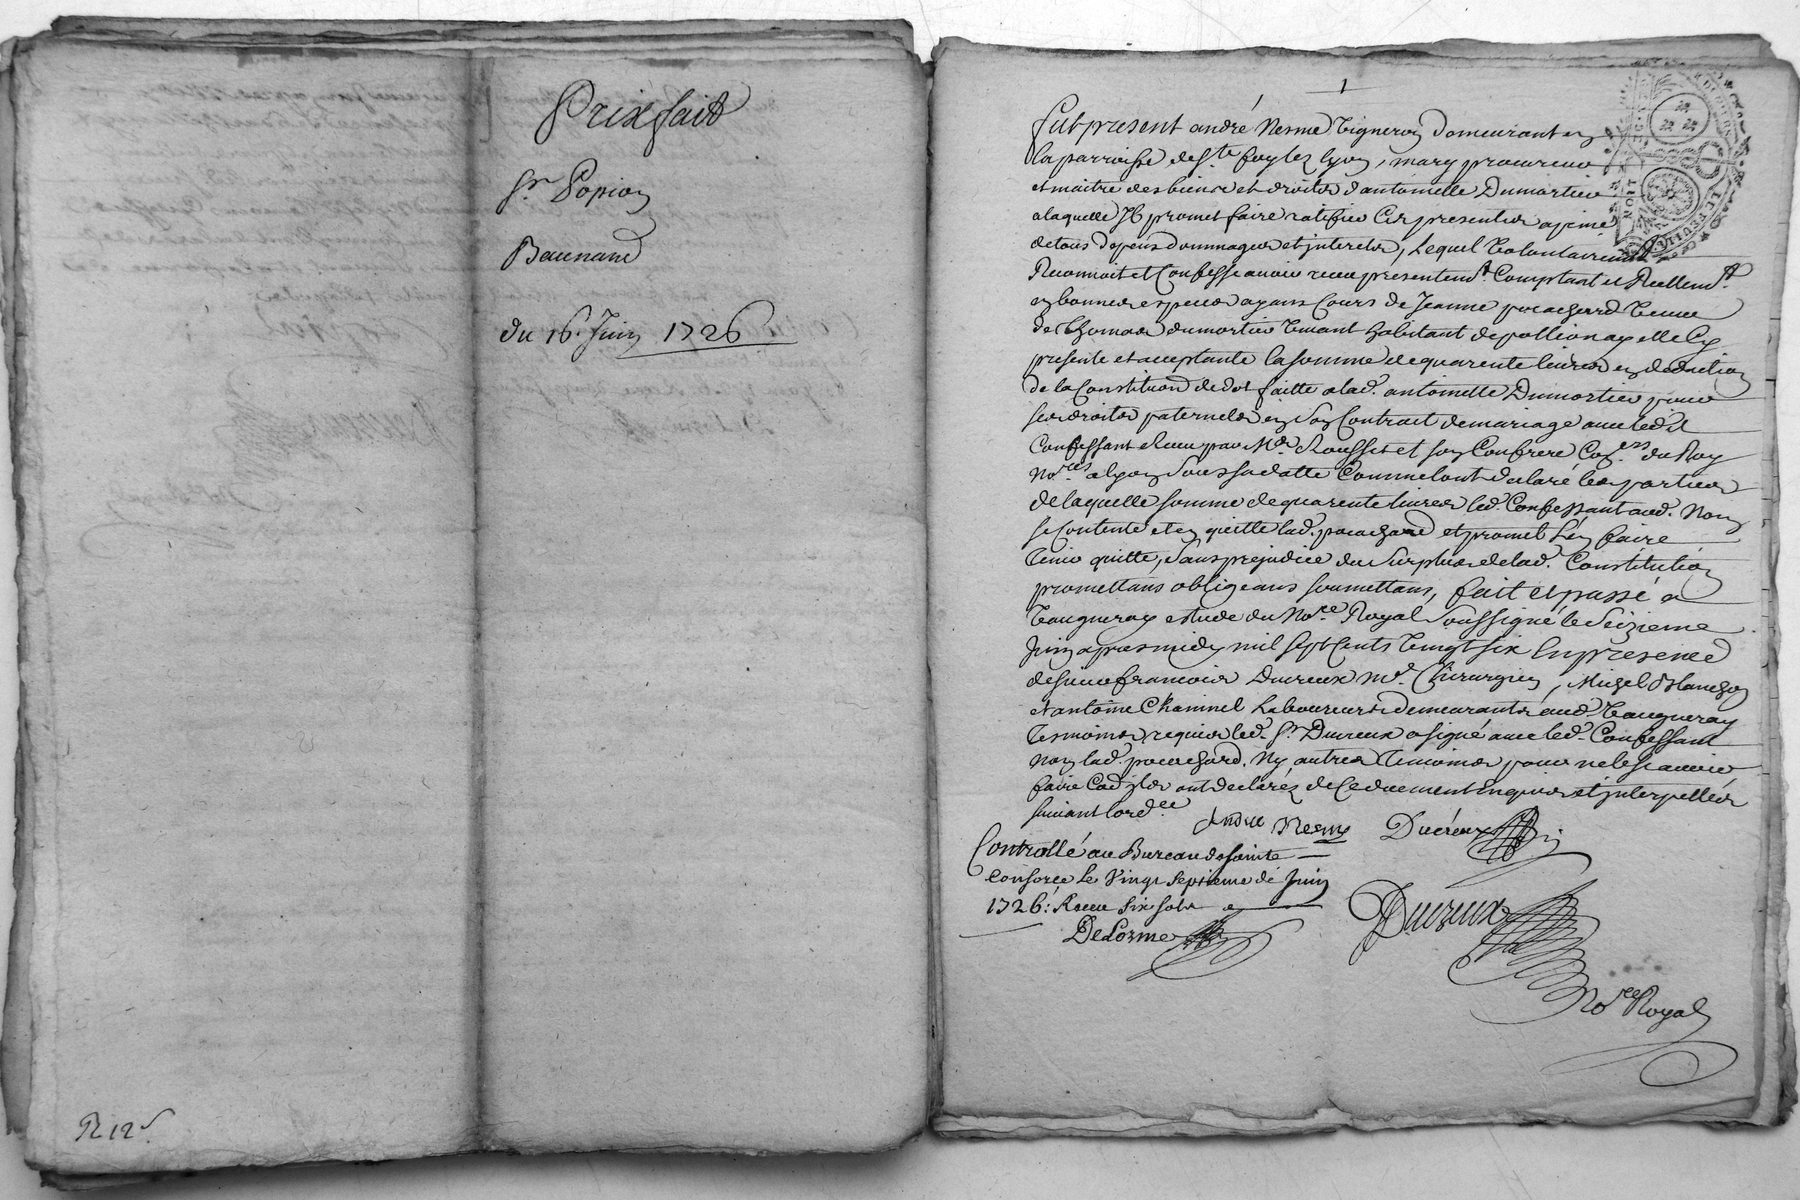 Prixfait
Sr. Popion
Baunand
du 16. Juin 1726
R 12s.
1
Fut present andré Nesme Vigneron demeurant en
la parroisse de Ste. foy lez lyon, mary procureur
et maitre des biens et droits d'antoinette Dumortier
a laquelle Il promet faire ratifier Ces presentes a peine
de tous depens dommages et jnterets, Lequel Volontairement
Reconnoit et Confesse avoir receu presentemt. Comptant et Reellemt.
en bonnes especes ayans Cours de Jeanne pocachard Veuve
de thomas dumortier Vivant habitant de pollionay elle Cy
presente et acceptante la somme de quarente livres en deduction
de la Constitution de dot faitte a lad. antoinette Dumortier pour
ses droits paternels en son Contrat de mariage avec led.
Confessant Receu par Me. Rousset et son Confrere Cons.ers du Roy
No.res a lyon sous sa datte Comme l'ont declaré les parties
de laquelle somme de quarente livres led. Confessant aud. Nom
se Contente et en quitte lad. pocachard et promet l'en faire
tenir quitte, sans prejudice du surplus de lad. Constitution
promettans obligeans soumettans, fait et passé a
Vaugneray estude du No.re Royal soussigné le seizieme
Juin apres midy mil sept Cents Vingt six En presence
de sieur francois Ducreux Me. Chirurgien, Michel Blanchon
et antoine Chaninel Laboureurs demeurants aud. Vaugneray
tesmoins requis led. Sr. Ducreux a signé avec led. Confessant
non lad. pocachard. Ny autres tesmoins pour ne le scavoir
faire Comme ils ont declarés de Ce duement Enquis et jnterpellés
suivant l'ord.ce
Andre Nesme Ducreux
Controllé au Bureau de sainte
Consorce Le Vingt septieme de Juin
1726: Receu six sols
DeLorme
Ducreux
No.re Royal